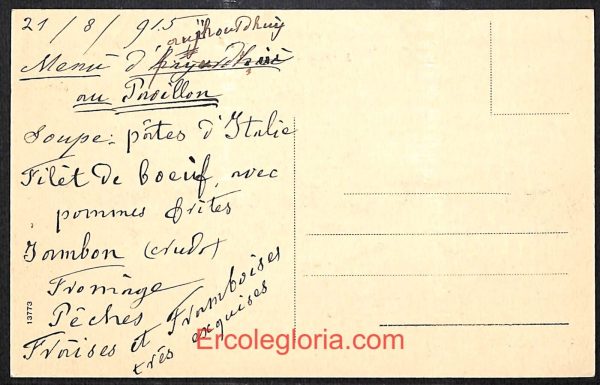 21/8/915
aujhourdhuiy
Menù d'
au Pavillon
Soupe: pâtes d'Italie
Filêt de boeuf, avec
pommes frites
Jambon (crudo)
Fromage
Pêches
Fraises et Framboises
très exquises
13773
Ercolegloria.com